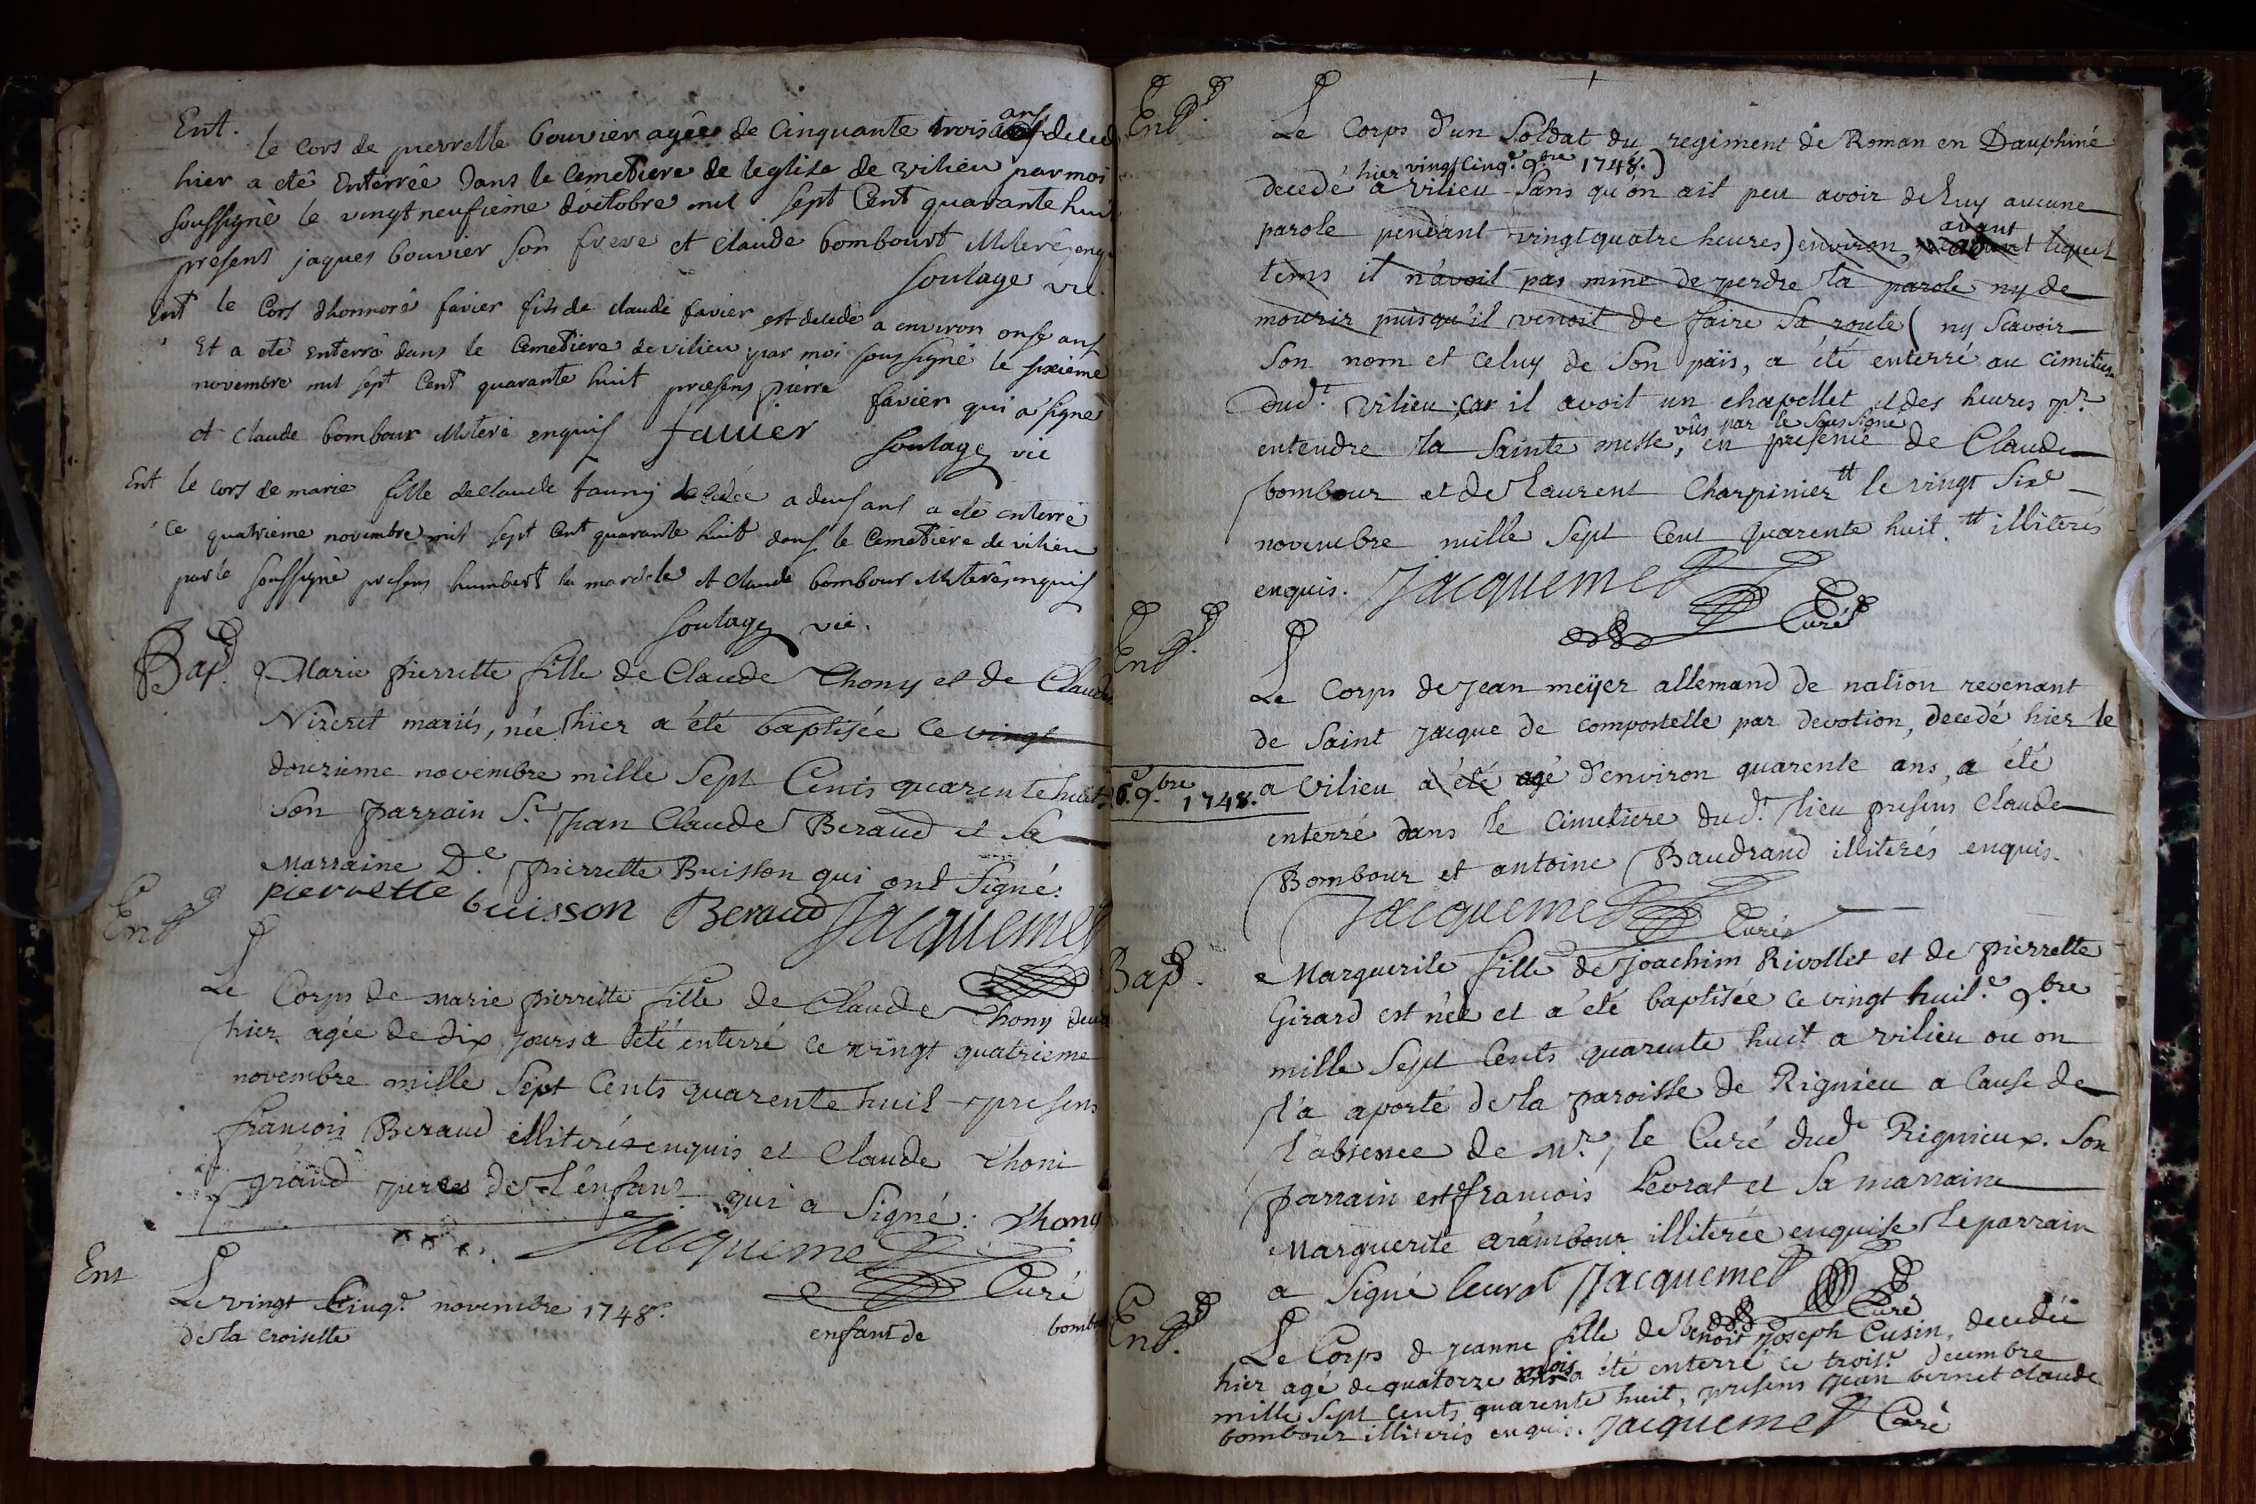 Ent. le cors de pierrette bouvier agée de Cinquante trois ans deced
hier a eté Enterrée dans le Cemetiere de leglise de vilieu par moi
soussigné le vingt neufieme doctobre mil sept Cent quarante huit
presens jaques bouvier son frere et claude bombourt illiterés enq.
soulage vic.
Ent le Cors dhonnoré favier fils de claude favier est decedé a environ onse ans
Et a eté enterré dans le Cemetiere de vilieu par moi soussigné le sixieme
novembre mil sept Cent quarante huit presens pierre favier qui a signé
et claude bombour illiteré enquis favier
soulage vic
Ent le cors de marie fille de claude tauny decedée a deus ans a eté enterré
ce quatrieme novembre mil sept Cent quarante huit dans le Cemetiere de vilieu
par le soussigné presens humbert la et claude bombour illiterés enquis
soulage vic.
Bap.
Marie pierrette fille de Claude Thony et de Claud
Nizeret mariés, née hier a été baptisée ce vingt
douzieme novembre mille Sept Cents quarente huit.
Son parrain S.r Jean Claude Beraud et Sa
Marraine D.e pierrette Buisson qui ont Signé.
pierrette buisson Beraud Jacquemet
Ent
Le Corps de marie pierrette fille de Claude Thony deced
hier agée de dix jours a été enterré ce vingt quatrieme
novembre mille Sept Cents quarente huit presens
françois Beraud illiteré enquis et Claude Thoni
grand pere de l'enfant qui a Signé. Thony
Jacquemet
Curé
Ent Le vingt Cinq.e novembre 1748.
de la croisette enfant de bombo
Ent.
Le Corps d'un Soldat du regiment de Roman en Dauphiné
hier vingt Cinq.e 9.bre 1748.)
decedé a vilieu Sans qu'on ait peu avoir de luy aucune
parole pendant vingt quatre heures) environ, avant lequel
tems il n'avoit pas mine de perdre la parole ny de
mourir puisqu'il venoit de faire Sa route ( ny Scavoir
Son nom et celuy de Son païs, a été enterré au cimitiere
dud.t vilieu, car il avoit un chapellet et des heures p.r
vûs par le Soussigné
entendre la Sainte messe, en presence de Claude
bombour et de Laurent Charpinier tt le vingt Six.e
novembre mille Sept Cent quarente huit. tt illiterés
enquis. Jacquemet
Curé
Ent.
Le Corps de Jean meÿer allemand de nation revenant
de Saint Jacque de compostelle par devotion, decedé hier le
6.e 9.bre 1748. a Vilieu a été agé d'environ quarente ans, a été
enterré dans le Cimetiere dud.t lieu presens Claude
Bombour et antoine Baudrand illiterés enquis.
Jacquemet
Curé
Bap.
Marguerite fille de Joachim Rivollet et de pierrette
Girard est née et a été baptisée ce vingt huit.e 9.bre
mille Sept Cents quarente huit a vilieu ou on
l'a aporté de la paroisse de Rignieu a Cause de
l'absence de M.r le Curé dud.t Rignieux. Son
parrain est françois Levrat et Sa marraine
Marguerite arambour illiterée enquise le parrain
a Signé levrat Jacquemet
Curé
Ent.
Le Corps de Jeanne fille de Benoit Joseph Cusin, decedée
hier agé de quatorze mois a été enterré ce trois.e decembre
mille Sept Cents quarente huit, presens Jean bernet claude
bombour illiterés enquis. Jacquemet Curé